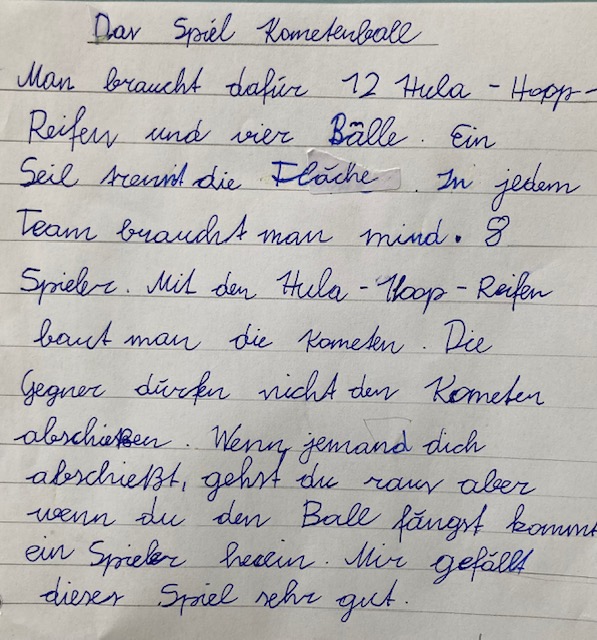 Das Spiel Kometenball
Man braucht dafür 12 Hula - Hoop-
Reifen und vier Bälle. Ein
Seil trennt die Fläche. In jedem
Team braucht man mind. 8
Spieler. Mit den Hula - Hoop - Reifen
baut man die Kometen. Die
Gegner dürfen nicht den Kometen
abschießen. Wenn jemand dich
abschießt, gehst du raus aber
wenn du den Ball fängst kommt
ein Spieler herein. Mir gefällt
dieses Spiel sehr gut.